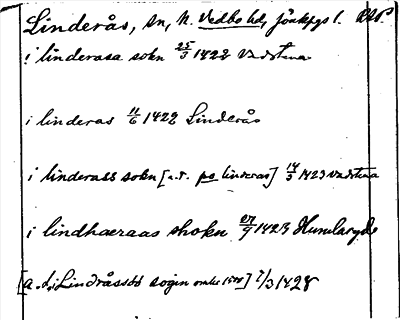 Linderås, sn, N. Vedbo hd, Jönkpgs l.
i linderasa sokn 25/3 1422 Vadstena
i linderas 11/6 1422 Linderås
i linderass sokn [a.t. pa linderas] 14/3 1423 Vadstena
i lindhaeraas shokn 27/9 1423 Hunularyde
[a. d. i Lindråssöö sogin omkr 1500] 7/3 1428